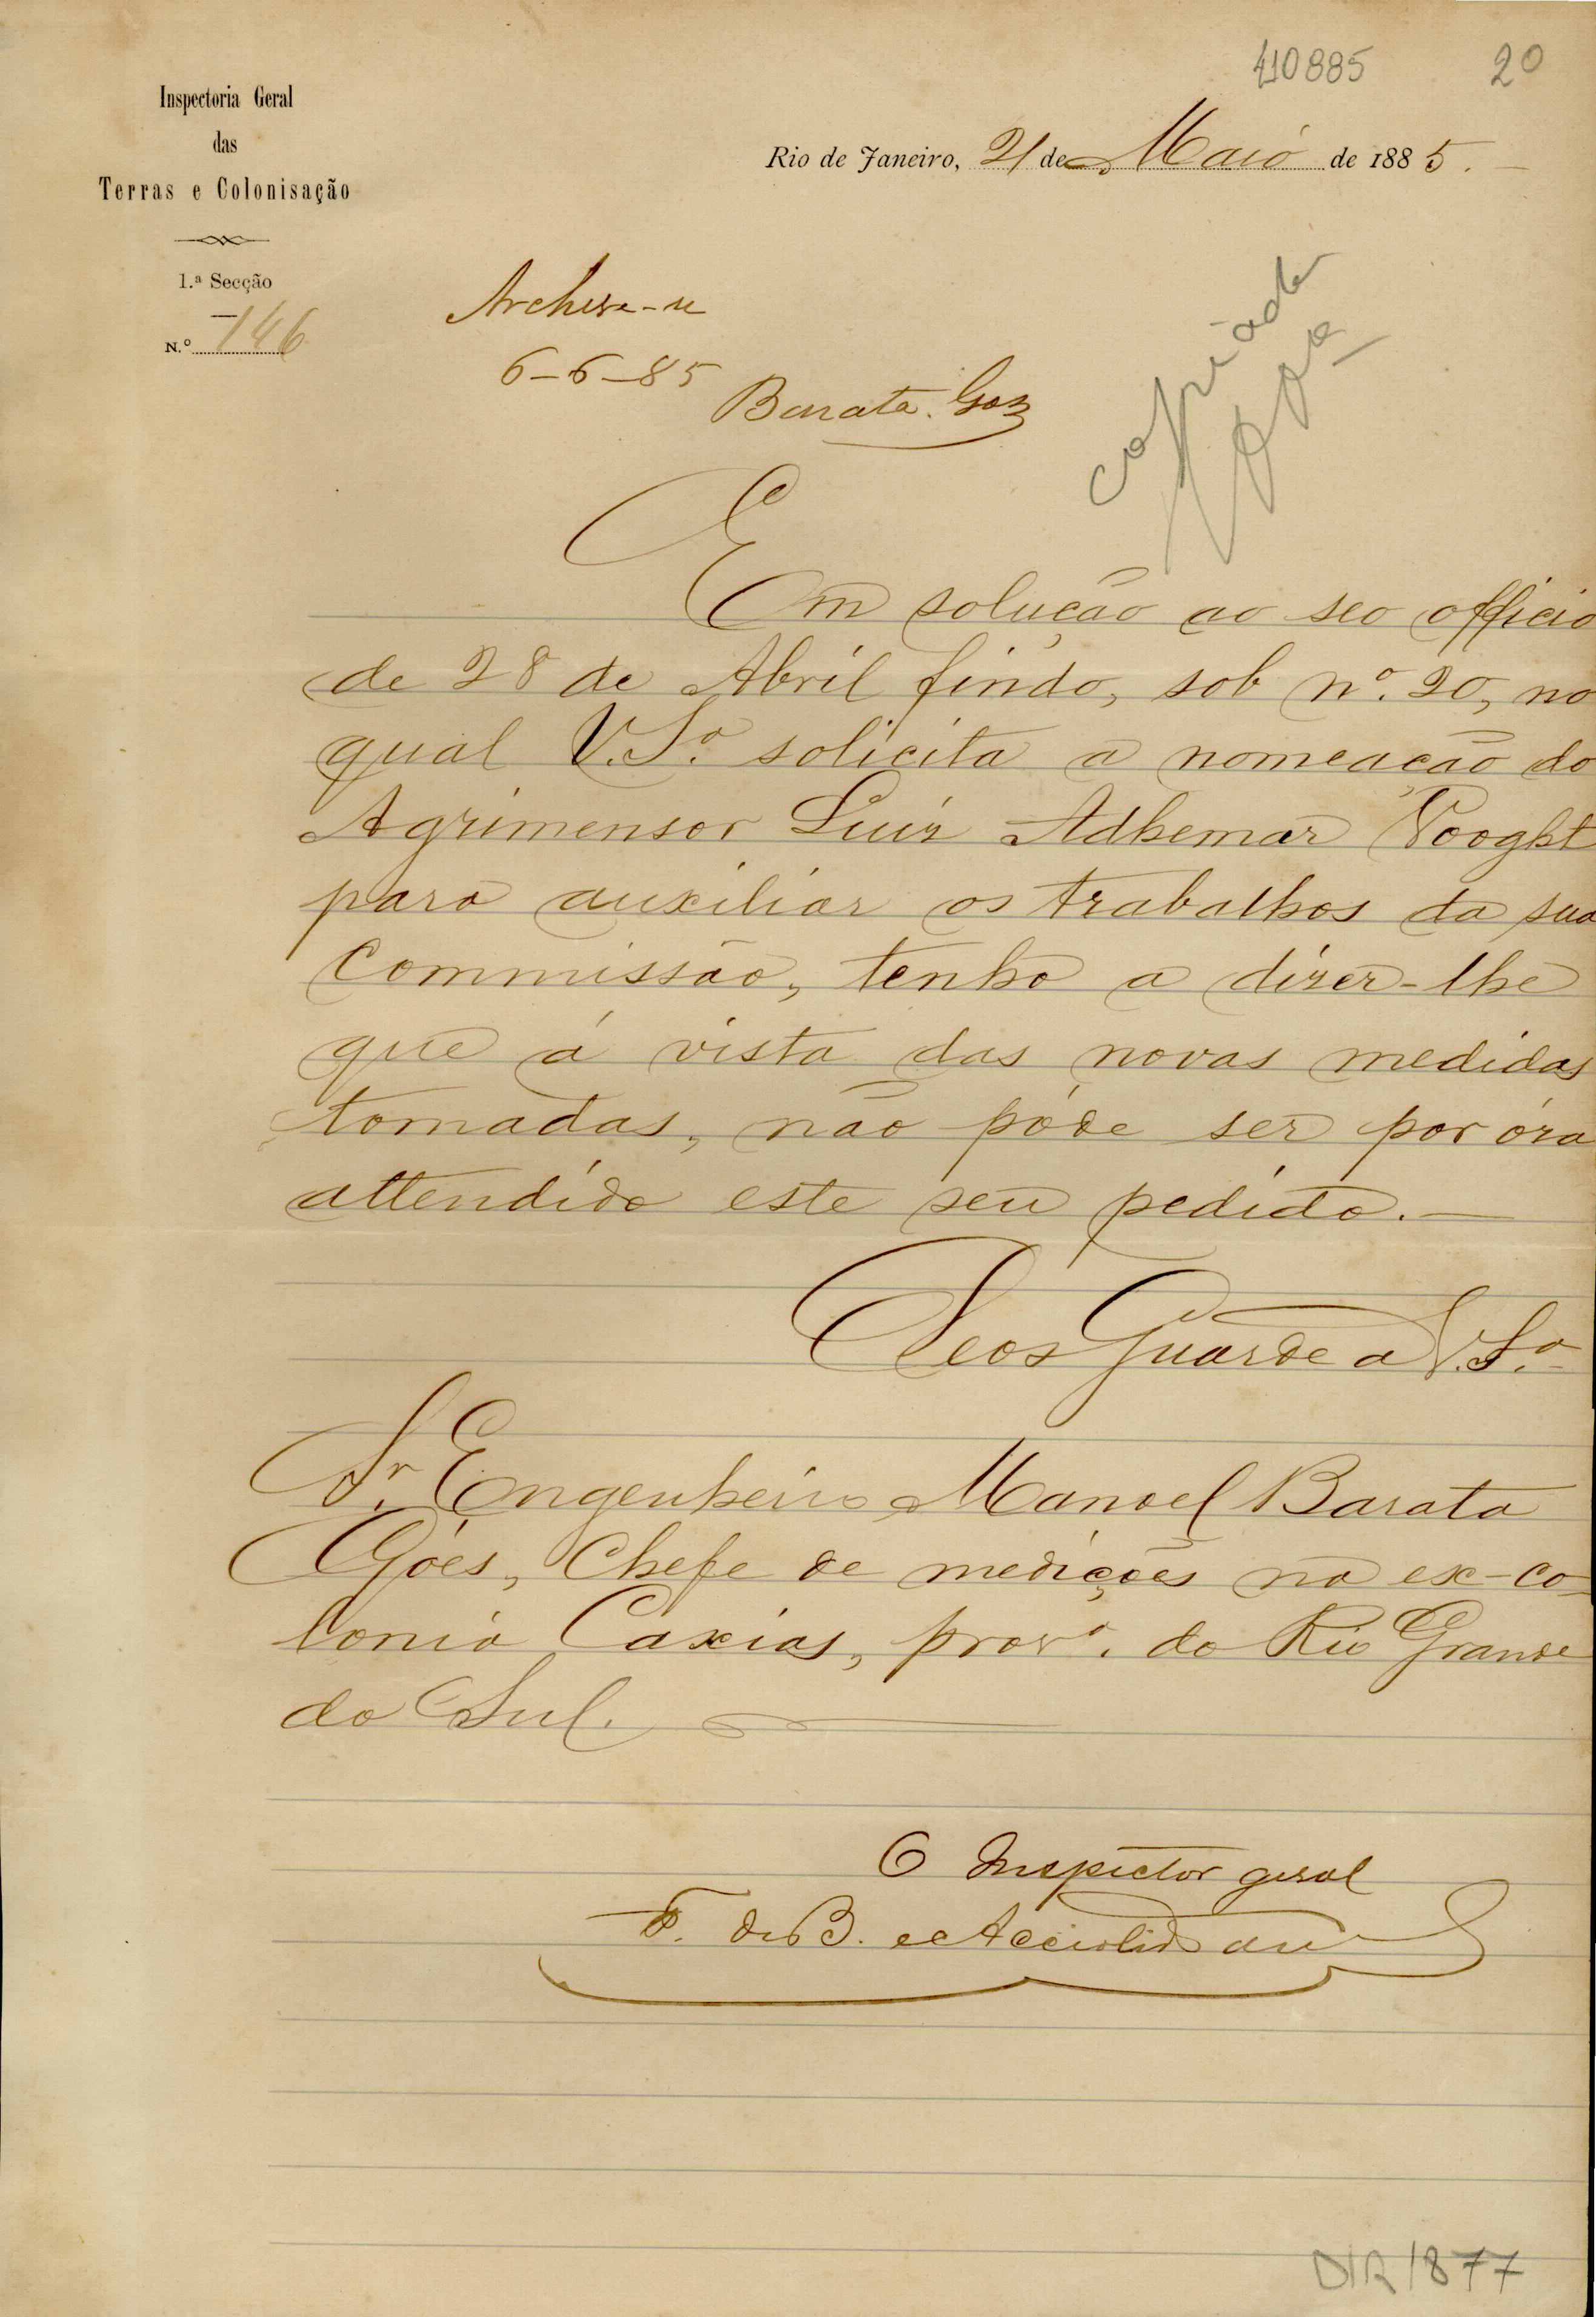 410885 20
Inspectoria Geral
das
Terras e Colonisação
1.ª Secção
N.º 146
Rio de Janeiro, 21 de Maio de 1885.
Archive-se
6-6-85
Barata Goes
copiado
Em solução ao seo officio
de 28 de Abril findo, sob nº. 20, no
qual V.Sª. solicita a nomeação do
Agrimensor Luiz Adhemar Vooght
para auxiliar os trabalhos da sua
Commissão, tenho a dizer-lhe
que á vista das novas medidas
tomadas, não póde ser por óra
attendido este seu pedido.—
Deos Guarde a V.Sª.
Sr. Engenheiro Manoel Barata
Góes, Chefe de medições na ex-co=
lonia Caxias, provª. do Rio Grande
do Sul.
O Inspector geral
F. de B. e Accioli de
DIR 1877